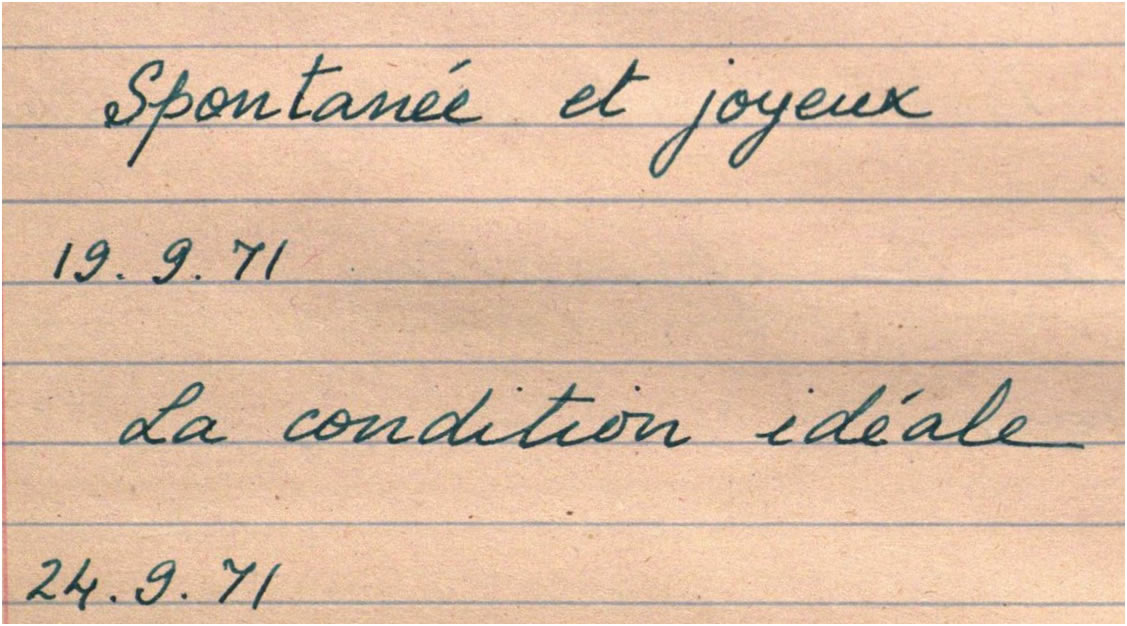 Spontanée et joyeux
19.9.71
La condition idéale
24.9.71